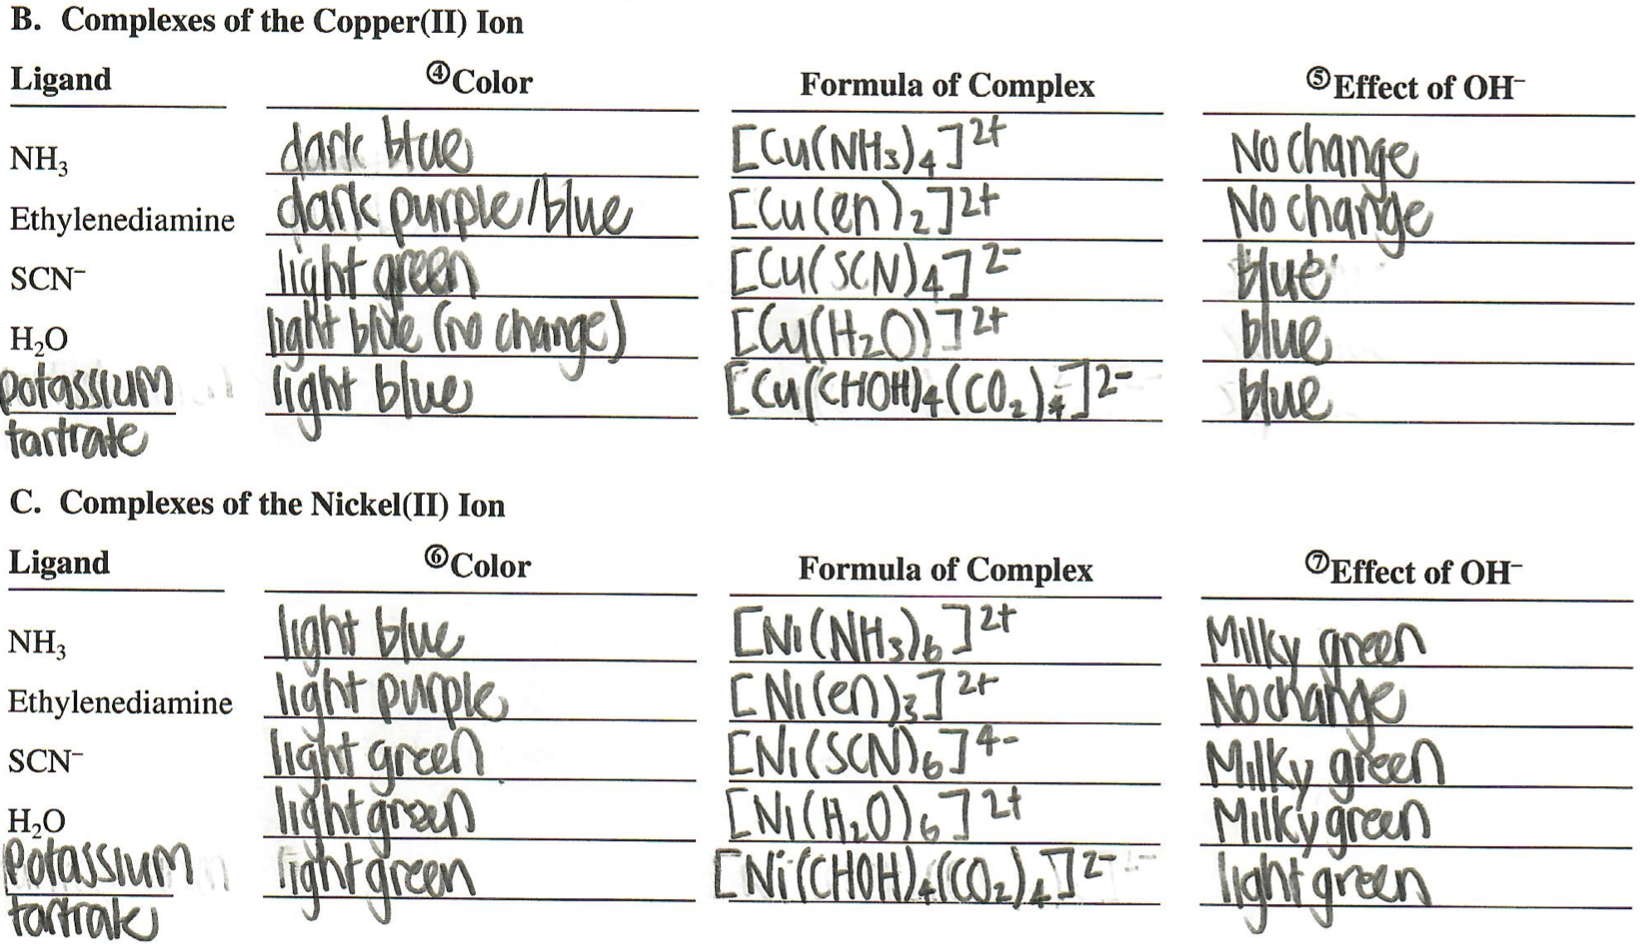 B. Complexes of the Copper(II) Ion
Ligand ④Color Formula of Complex ⑤Effect of OH⁻
NH₃ dark blue [Cu(NH₃)₄]²⁺ No change
Ethylenediamine dark purple/blue [Cu(en)₂]²⁺ No change
SCN⁻ light green [Cu(SCN)₄]²⁻ blue
H₂O light blue (no change) [Cu(H₂O)]²⁺ blue
potassium tartrate light blue [Cu(CHOH)₄(CO₂)₄]²⁻ blue
C. Complexes of the Nickel(II) Ion
Ligand ⑥Color Formula of Complex ⑦Effect of OH⁻
NH₃ light blue [Ni(NH₃)₆]²⁺ Milky green
Ethylenediamine light purple [Ni(en)₃]²⁺ No change
SCN⁻ light green [Ni(SCN)₆]⁴⁻ Milky green
H₂O light green [Ni(H₂O)₆]²⁺ Milky green
Potassium tartrate light green [Ni(CHOH)₄(CO₂)₄]²⁻ light green